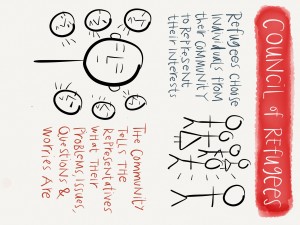 COUNCIL of REFUGEES
Refugees choose
individuals from
their community
to represent
their interests
The Community
Tells The
Representatives
what Their
Problems, Issues,
Questions &
Worries Are